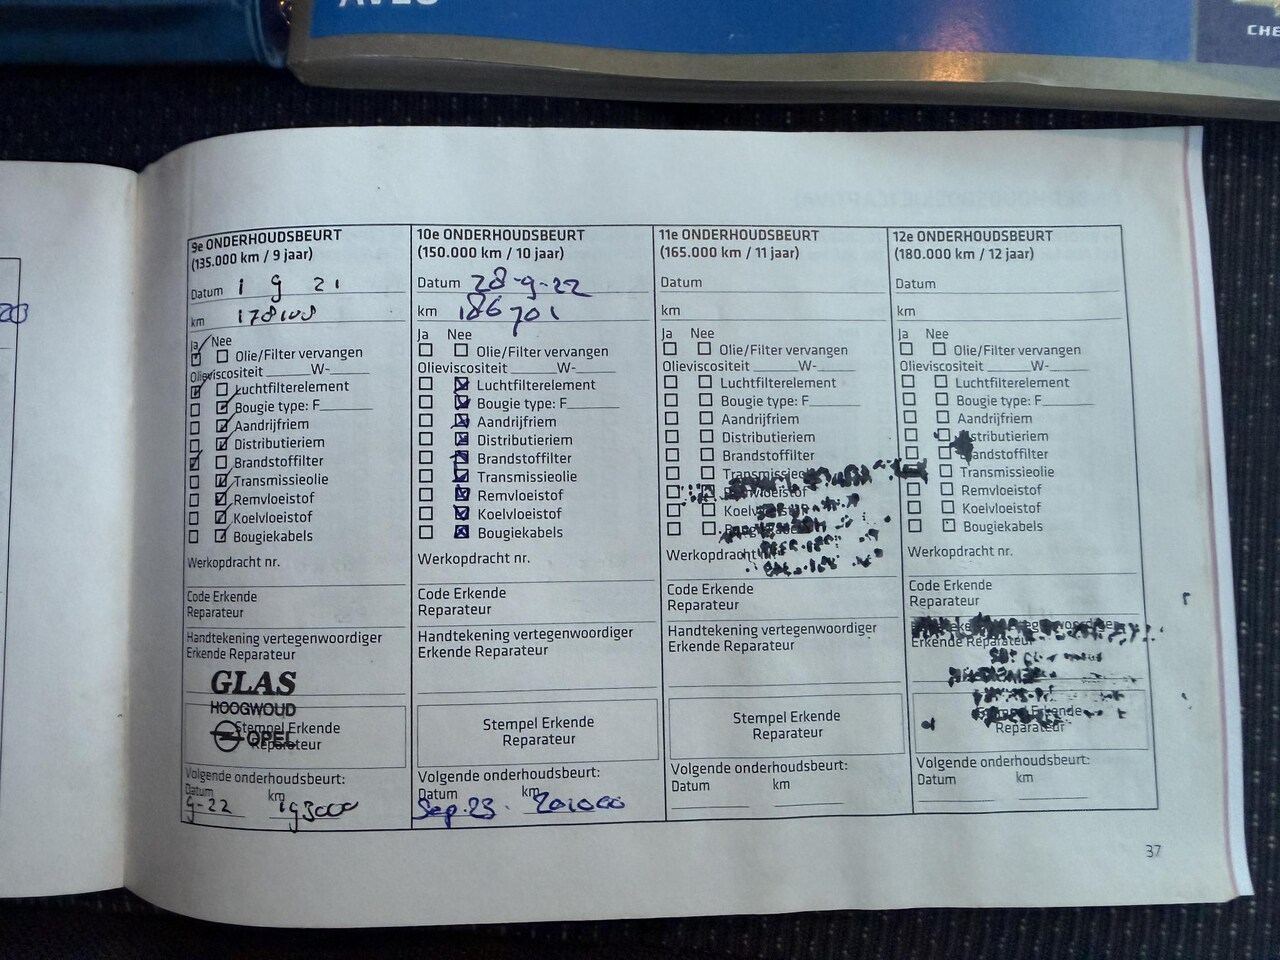 CHE
9e ONDERHOUDSBEURT
(135.000 km / 9 jaar)
Datum 1 9 21
km 178108
Ja Nee
Olie/Filter vervangen
Olieviscositeit ______W-_____
Luchtfilterelement
Bougie type: F________
Aandrijfriem
Distributieriem
Brandstoffilter
Transmissieolie
Remvloeistof
Koelvloeistof
Bougiekabels
Werkopdracht nr.
Code Erkende
Reparateur
Handtekening vertegenwoordiger
Erkende Reparateur
GLAS
HOOGWOUD
OPEL
Stempel Erkende
Reparateur
Volgende onderhoudsbeurt:
Datum km
9-22 193000
10e ONDERHOUDSBEURT
(150.000 km / 10 jaar)
Datum 28-9-22
km 186701
Ja Nee
Olie/Filter vervangen
Olieviscositeit ______W-_____
Luchtfilterelement
Bougie type: F________
Aandrijfriem
Distributieriem
Brandstoffilter
Transmissieolie
Remvloeistof
Koelvloeistof
Bougiekabels
Werkopdracht nr.
Code Erkende
Reparateur
Handtekening vertegenwoordiger
Erkende Reparateur
Stempel Erkende
Reparateur
Volgende onderhoudsbeurt:
Datum km
Sep. 23. 201000
11e ONDERHOUDSBEURT
(165.000 km / 11 jaar)
Datum
km
Ja Nee
Olie/Filter vervangen
Olieviscositeit ______W-_____
Luchtfilterelement
Bougie type: F________
Aandrijfriem
Distributieriem
Brandstoffilter
Transmissieolie
Remvloeistof
Koelvloeistof
Bougiekabels
Werkopdracht nr.
Code Erkende
Reparateur
Handtekening vertegenwoordiger
Erkende Reparateur
Stempel Erkende
Reparateur
Volgende onderhoudsbeurt:
Datum km
12e ONDERHOUDSBEURT
(180.000 km / 12 jaar)
Datum
km
Ja Nee
Olie/Filter vervangen
Olieviscositeit ______W-_____
Luchtfilterelement
Bougie type: F________
Aandrijfriem
Distributieriem
Brandstoffilter
Transmissieolie
Remvloeistof
Koelvloeistof
Bougiekabels
Werkopdracht nr.
Code Erkende
Reparateur
Handtekening vertegenwoordiger
Erkende Reparateur
Stempel Erkende
Reparateur
Volgende onderhoudsbeurt:
Datum km
37